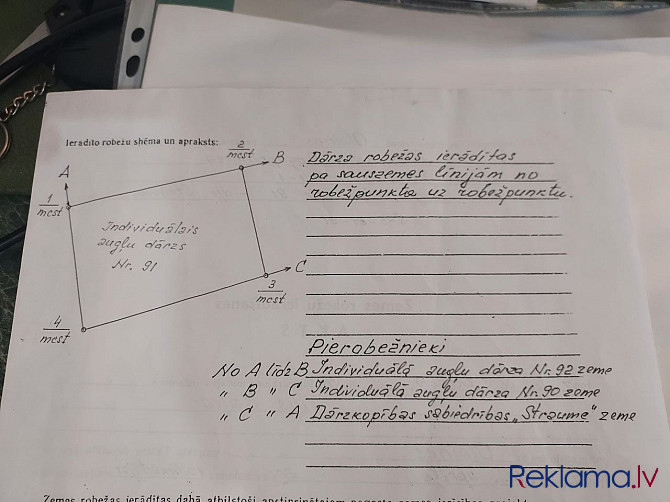 Ierādīto robežu shēma un apraksts:
A
B
C
1
mest
2
mest
3
mest
4
mest
Individuālais
augļu dārzs
Nr. 91
Dārza robežas ierādītas
pa sauszemes līnijām no
robežpunkta uz robežpunktu.
Pierobežnieki
No A līdz B Individuālā augļu dārza Nr. 92 zeme
" B " C Individuālā augļu dārza Nr. 90 zeme
" C " A Dārzkopības sabiedrības „Straume" zeme
Zemes robežas ierādītas dabā atbilstoši apstiprinātajam
Reklama.lv